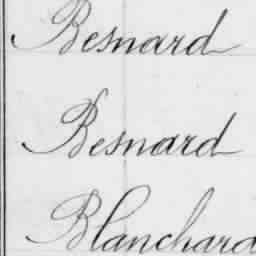 Besnard
Besnard
Blanchard